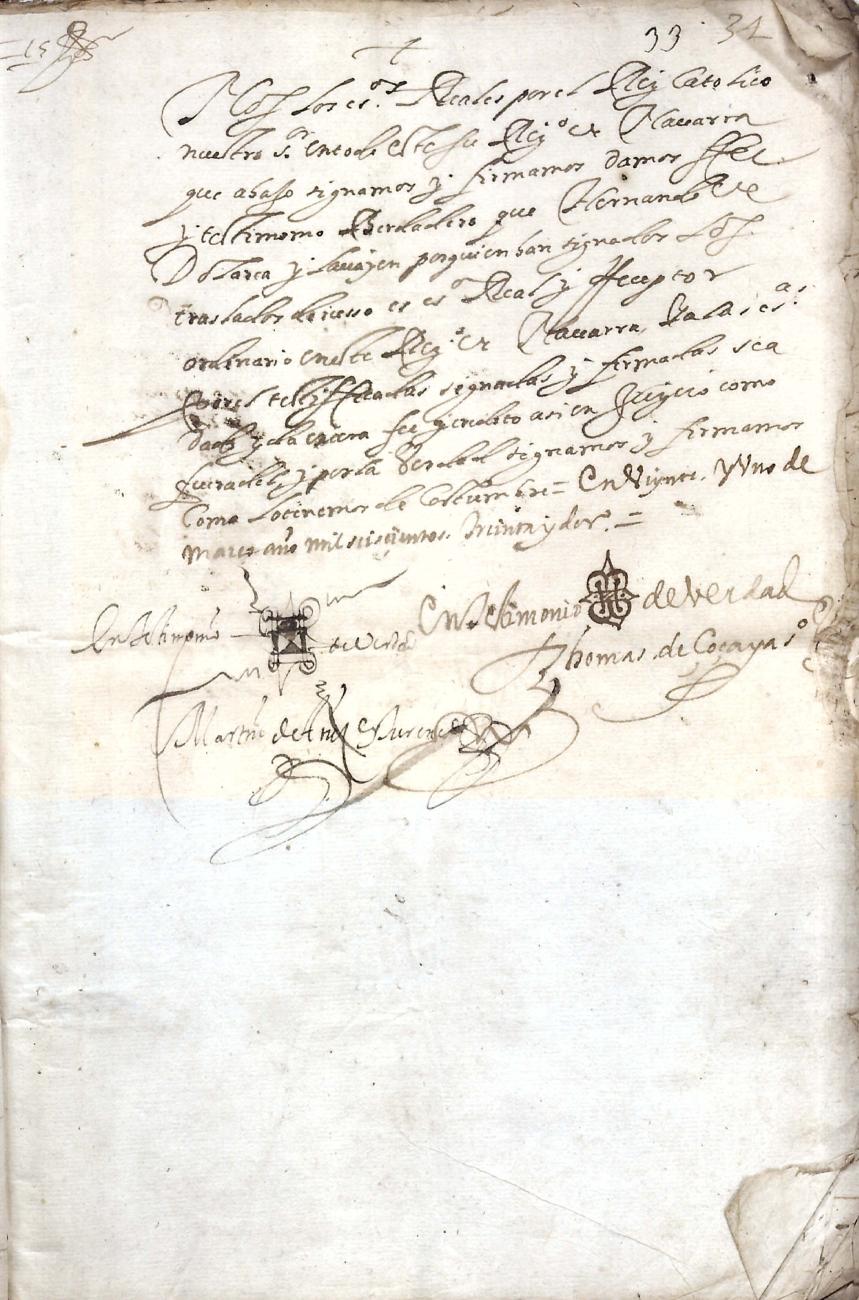 33 34
Nos los es.os Reales por el Rey Catolico
nuestro s.or en todo este su Rey.o de Nauarra
que abajo signamos y firmamos damos ffee
y testimonio Berdadero que Hernando de
Dolarea y por quien ban signados los
traslados de suso es es.o Real y Receptor
ordinario en este Rey.o de Nauarra y a las es.as
por el testifficadas signadas y firmadas sea
dado y da entera fee y credito asi en Juiçio como
fuera del, y por la Verdad signamos y firmamos
Como lo tenemos de Costumbre = En Viynte, y Vno de
Março año mil seisçientos. treinta y dos. =
En testimonio de Verdad
En testimonio de Verdad
Thomas de Çoçaya s.o
Martin de